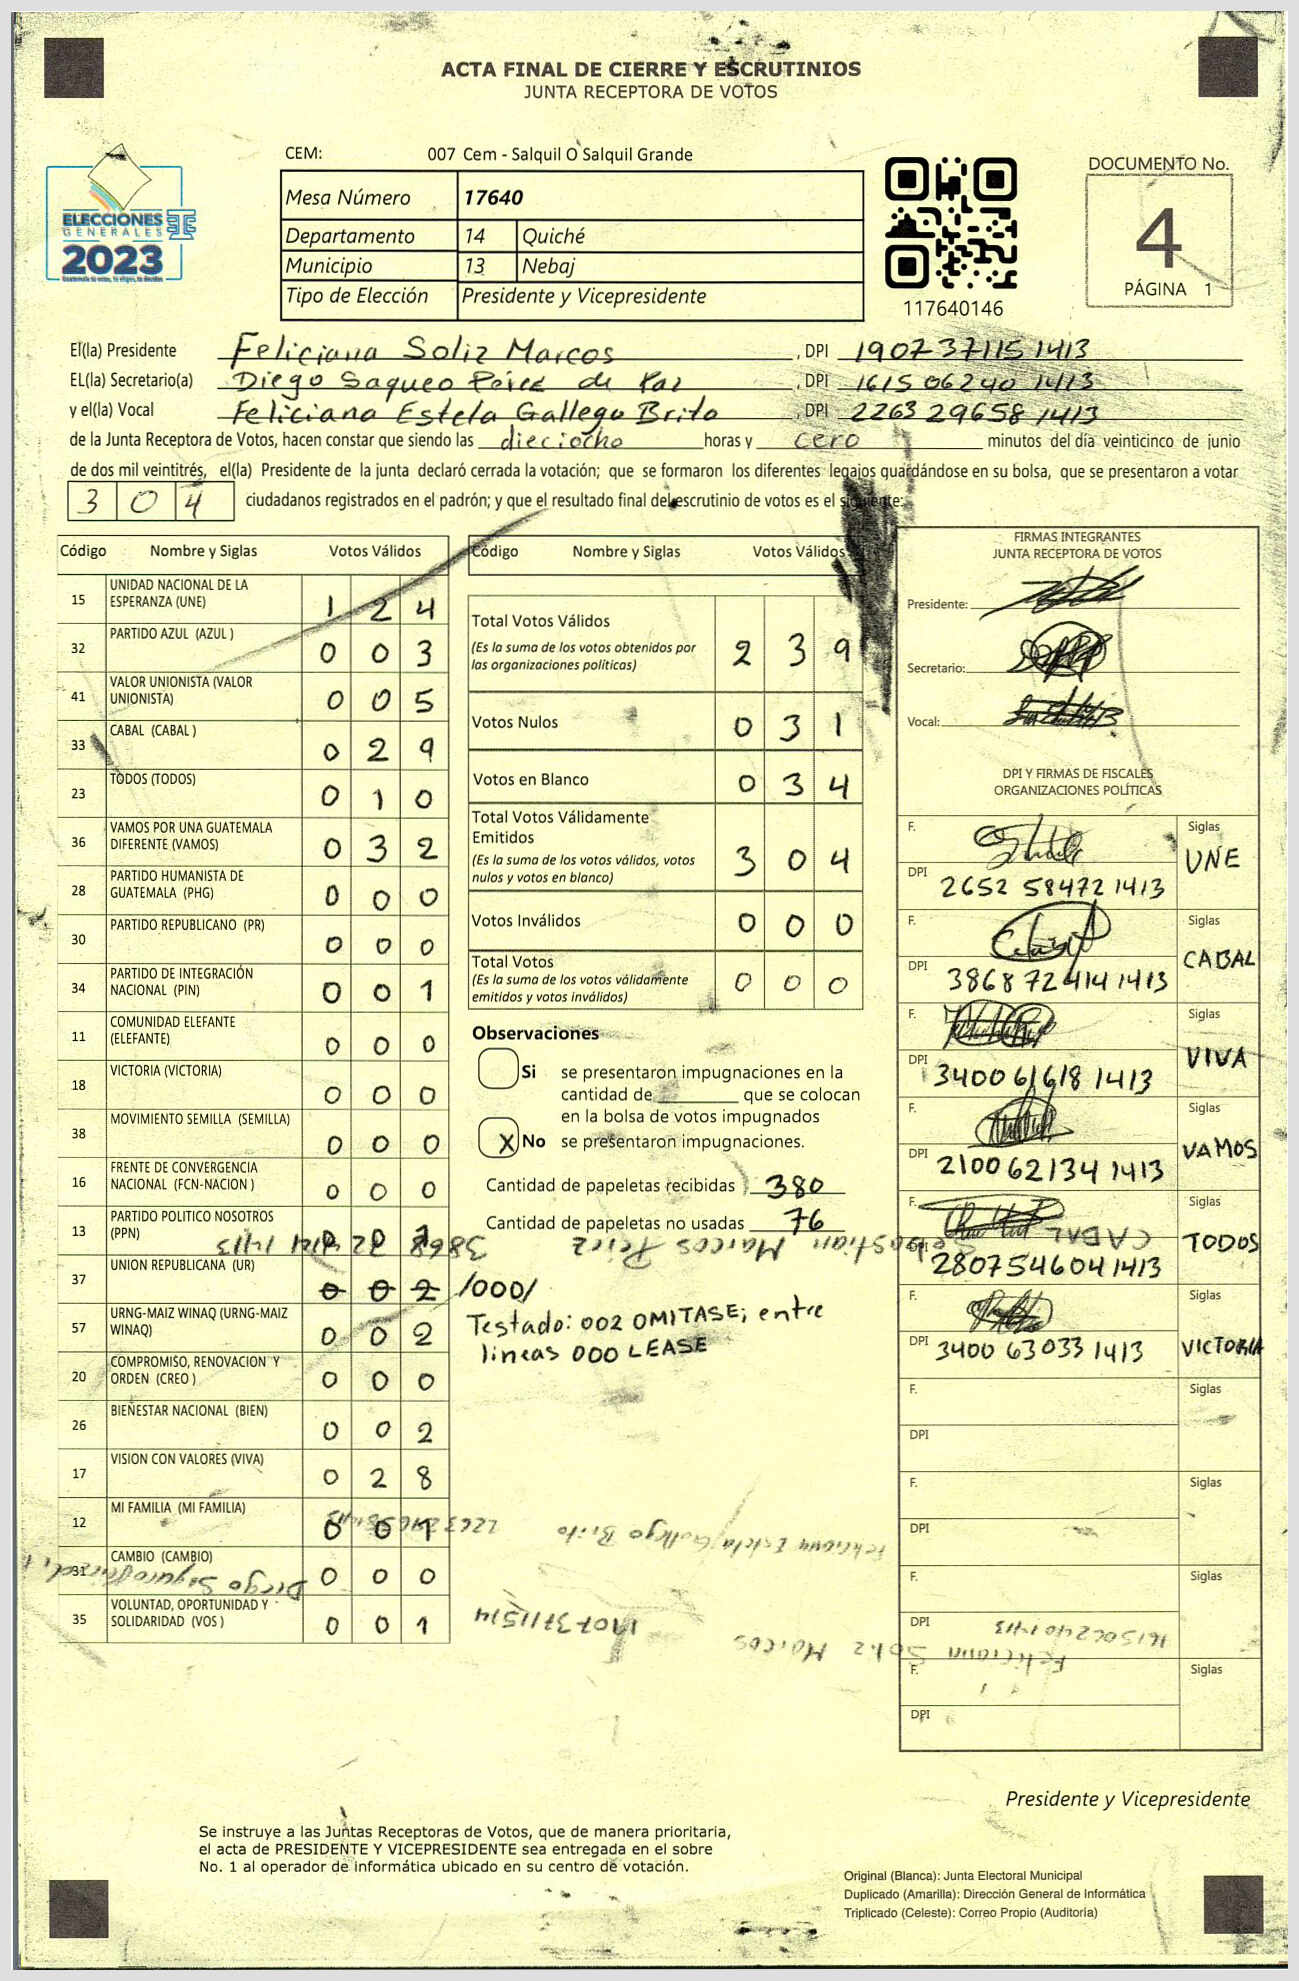 ACTA FINAL DE CIERRE Y ESCRUTINIOS
JUNTA RECEPTORA DE VOTOS
CEM: 007 Cem - Salquil O Salquil Grande
ELECCIONES
GENERALES
2023
Mesa Número 17640
Departamento 14 Quiché
Municipio 13 Nebaj
Tipo de Elección Presidente y Vicepresidente
117640146
DOCUMENTO No.
4
PÁGINA 1
El(la) Presidente Feliciana Soliz Marcos, DPI 1907 37115 1413
EL(la) Secretario(a) Diego Saqueo Pérez de Paz, DPI 1615 06240 1413
y el(la) Vocal Feliciana Estela Gallego Brito, DPI 2263 29658 1413
de la Junta Receptora de Votos, hacen constar que siendo las dieciocho horas y cero minutos del día veinticinco de junio
de dos mil veintitrés, el(la) Presidente de la junta declaró cerrada la votación; que se formaron los diferentes legajos guardándose en su bolsa, que se presentaron a votar
304 ciudadanos registrados en el padrón; y que el resultado final del escrutinio de votos es el siguiente:
Código Nombre y Siglas Votos Válidos
15 UNIDAD NACIONAL DE LA ESPERANZA (UNE) 1 2 4
32 PARTIDO AZUL (AZUL ) 0 0 3
41 VALOR UNIONISTA (VALOR UNIONISTA) 0 0 5
33 CABAL (CABAL ) 0 2 9
23 TODOS (TODOS) 0 1 0
36 VAMOS POR UNA GUATEMALA DIFERENTE (VAMOS) 0 3 2
28 PARTIDO HUMANISTA DE GUATEMALA (PHG) 0 0 0
30 PARTIDO REPUBLICANO (PR) 0 0 0
34 PARTIDO DE INTEGRACIÓN NACIONAL (PIN) 0 0 1
11 COMUNIDAD ELEFANTE (ELEFANTE) 0 0 0
18 VICTORIA (VICTORIA) 0 0 0
38 MOVIMIENTO SEMILLA (SEMILLA) 0 0 0
16 FRENTE DE CONVERGENCIA NACIONAL (FCN-NACION ) 0 0 0
13 PARTIDO POLITICO NOSOTROS (PPN) 0 0 1
37 UNION REPUBLICANA (UR) 0 0 2 /000/
57 URNG-MAIZ WINAQ (URNG-MAIZ WINAQ) 0 0 2
20 COMPROMISO, RENOVACION Y ORDEN (CREO ) 0 0 0
26 BIENESTAR NACIONAL (BIEN) 0 0 2
17 VISION CON VALORES (VIVA) 0 2 8
12 MI FAMILIA (MI FAMILIA) 0 0 1
31 CAMBIO (CAMBIO) 0 0 0
35 VOLUNTAD, OPORTUNIDAD Y SOLIDARIDAD (VOS ) 0 0 1
Código Nombre y Siglas Votos Válidos
Total Votos Válidos 2 3 9
(Es la suma de los votos obtenidos por
las organizaciones políticas)
Votos Nulos 0 3 1
Votos en Blanco 0 3 4
Total Votos Válidamente
Emitidos 3 0 4
(Es la suma de los votos válidos, votos
nulos y votos en blanco)
Votos Inválidos 0 0 0
Total Votos 0 0 0
(Es la suma de los votos válidamente
emitidos y votos inválidos)
Observaciones
Si se presentaron impugnaciones en la
cantidad de que se colocan
en la bolsa de votos impugnados
X No se presentaron impugnaciones.
Cantidad de papeletas recibidas 380
Cantidad de papeletas no usadas 76
Sebastian Marcos Pérez 3868 72414 1413 CABAL
Testado: 002 OMITASE; entre
lineas 000 LEASE
Feliciana Estela Gallego Brito 2263 29658 1413
Feliciana Soliz Marcos 1907 37115 14
1615062401413
FIRMAS INTEGRANTES
JUNTA RECEPTORA DE VOTOS
Presidente:
Secretario:
Vocal:
DPI Y FIRMAS DE FISCALES
ORGANIZACIONES POLÍTICAS
F. Siglas UNE
DPI 2652 58472 1413
F. Siglas CABAL
DPI 3868 72414 1413
F. Siglas VIVA
DPI 3400 61618 1413
F. Siglas VAMOS
DPI 2100 62134 1413
F. Siglas TODOS
DPI 2807546041413
F. Siglas VICTORIA
DPI 3400 63033 1413
F. Siglas
DPI
F. Siglas
DPI
F. Siglas
DPI
F. Siglas
DPI
Presidente y Vicepresidente
Se instruye a las Juntas Receptoras de Votos, que de manera prioritaria,
el acta de PRESIDENTE Y VICEPRESIDENTE sea entregada en el sobre
No. 1 al operador de informática ubicado en su centro de votación.
Original (Blanca): Junta Electoral Municipal
Duplicado (Amarilla): Dirección General de Informática
Triplicado (Celeste): Correo Propio (Auditoria)